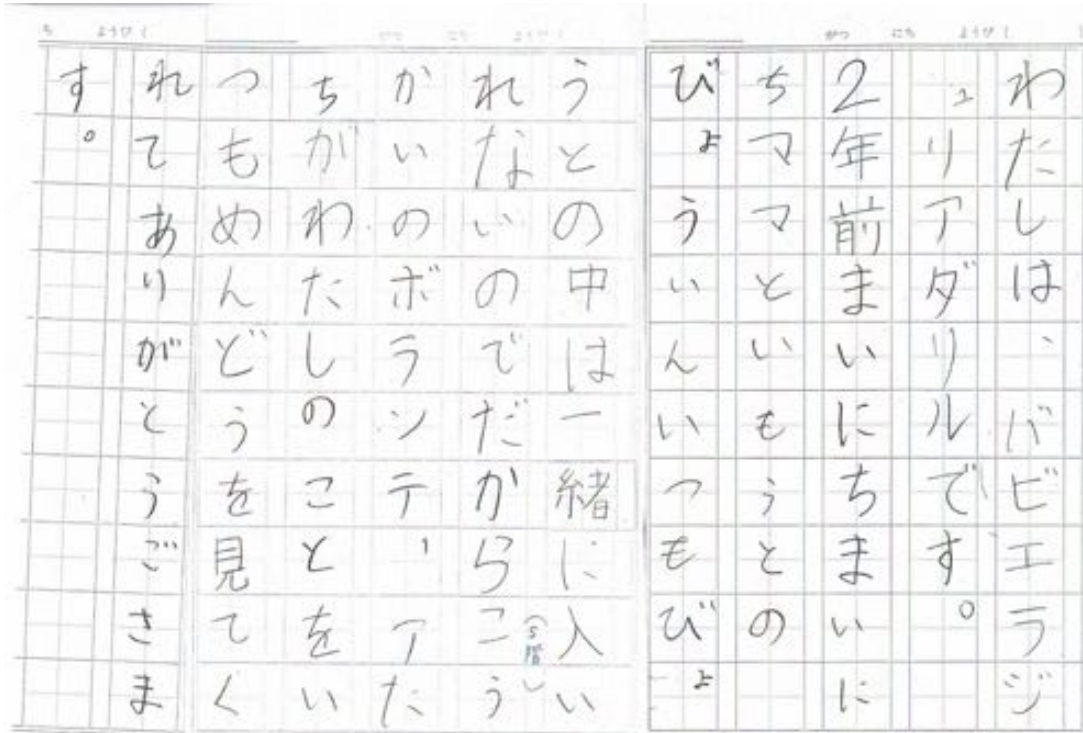 がつ にち ようび (
わたしは、バビエラジ
ュリアダリルです。
2年前まいにちまいに
ちママといもうとの
びょういんいつもびょ
がつ にち ようび (
うとの中は一緒に入い
れないのでだからこう
(5階)
かいのボランティアた
ちがわたしのことをい
つもめんどうを見てく
ち ようび (
れてありがとうごさま
す。